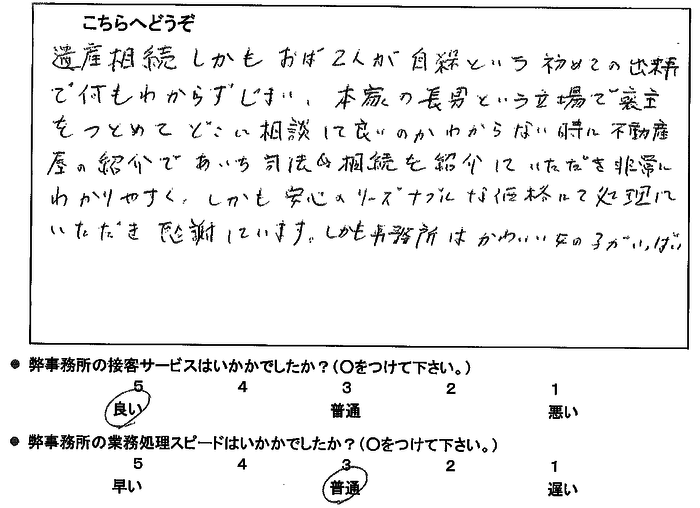 こちらへどうぞ
遺産相続 しかも おば2人が 自殺という 初めての出来事
で何もわからずじまい、本家の長男という立場で喪主
をつとめて どこに相談して良いのかわからない時に 不動産
屋の紹介で あいち司法&相続を紹介していただき非常に
わかりやすく、しかも安心のリーズナブルな価格にて処理して
いただき 感謝しています。しかも事務所は かわいい女の子がいっぱい
● 弊事務所の接客サービスはいかかでしたか？(〇をつけて下さい。)
5 4 3 2 1
良い 普通 悪い
● 弊事務所の業務処理スピードはいかかでしたか？(〇をつけて下さい。)
5 4 3 2 1
早い 普通 遅い